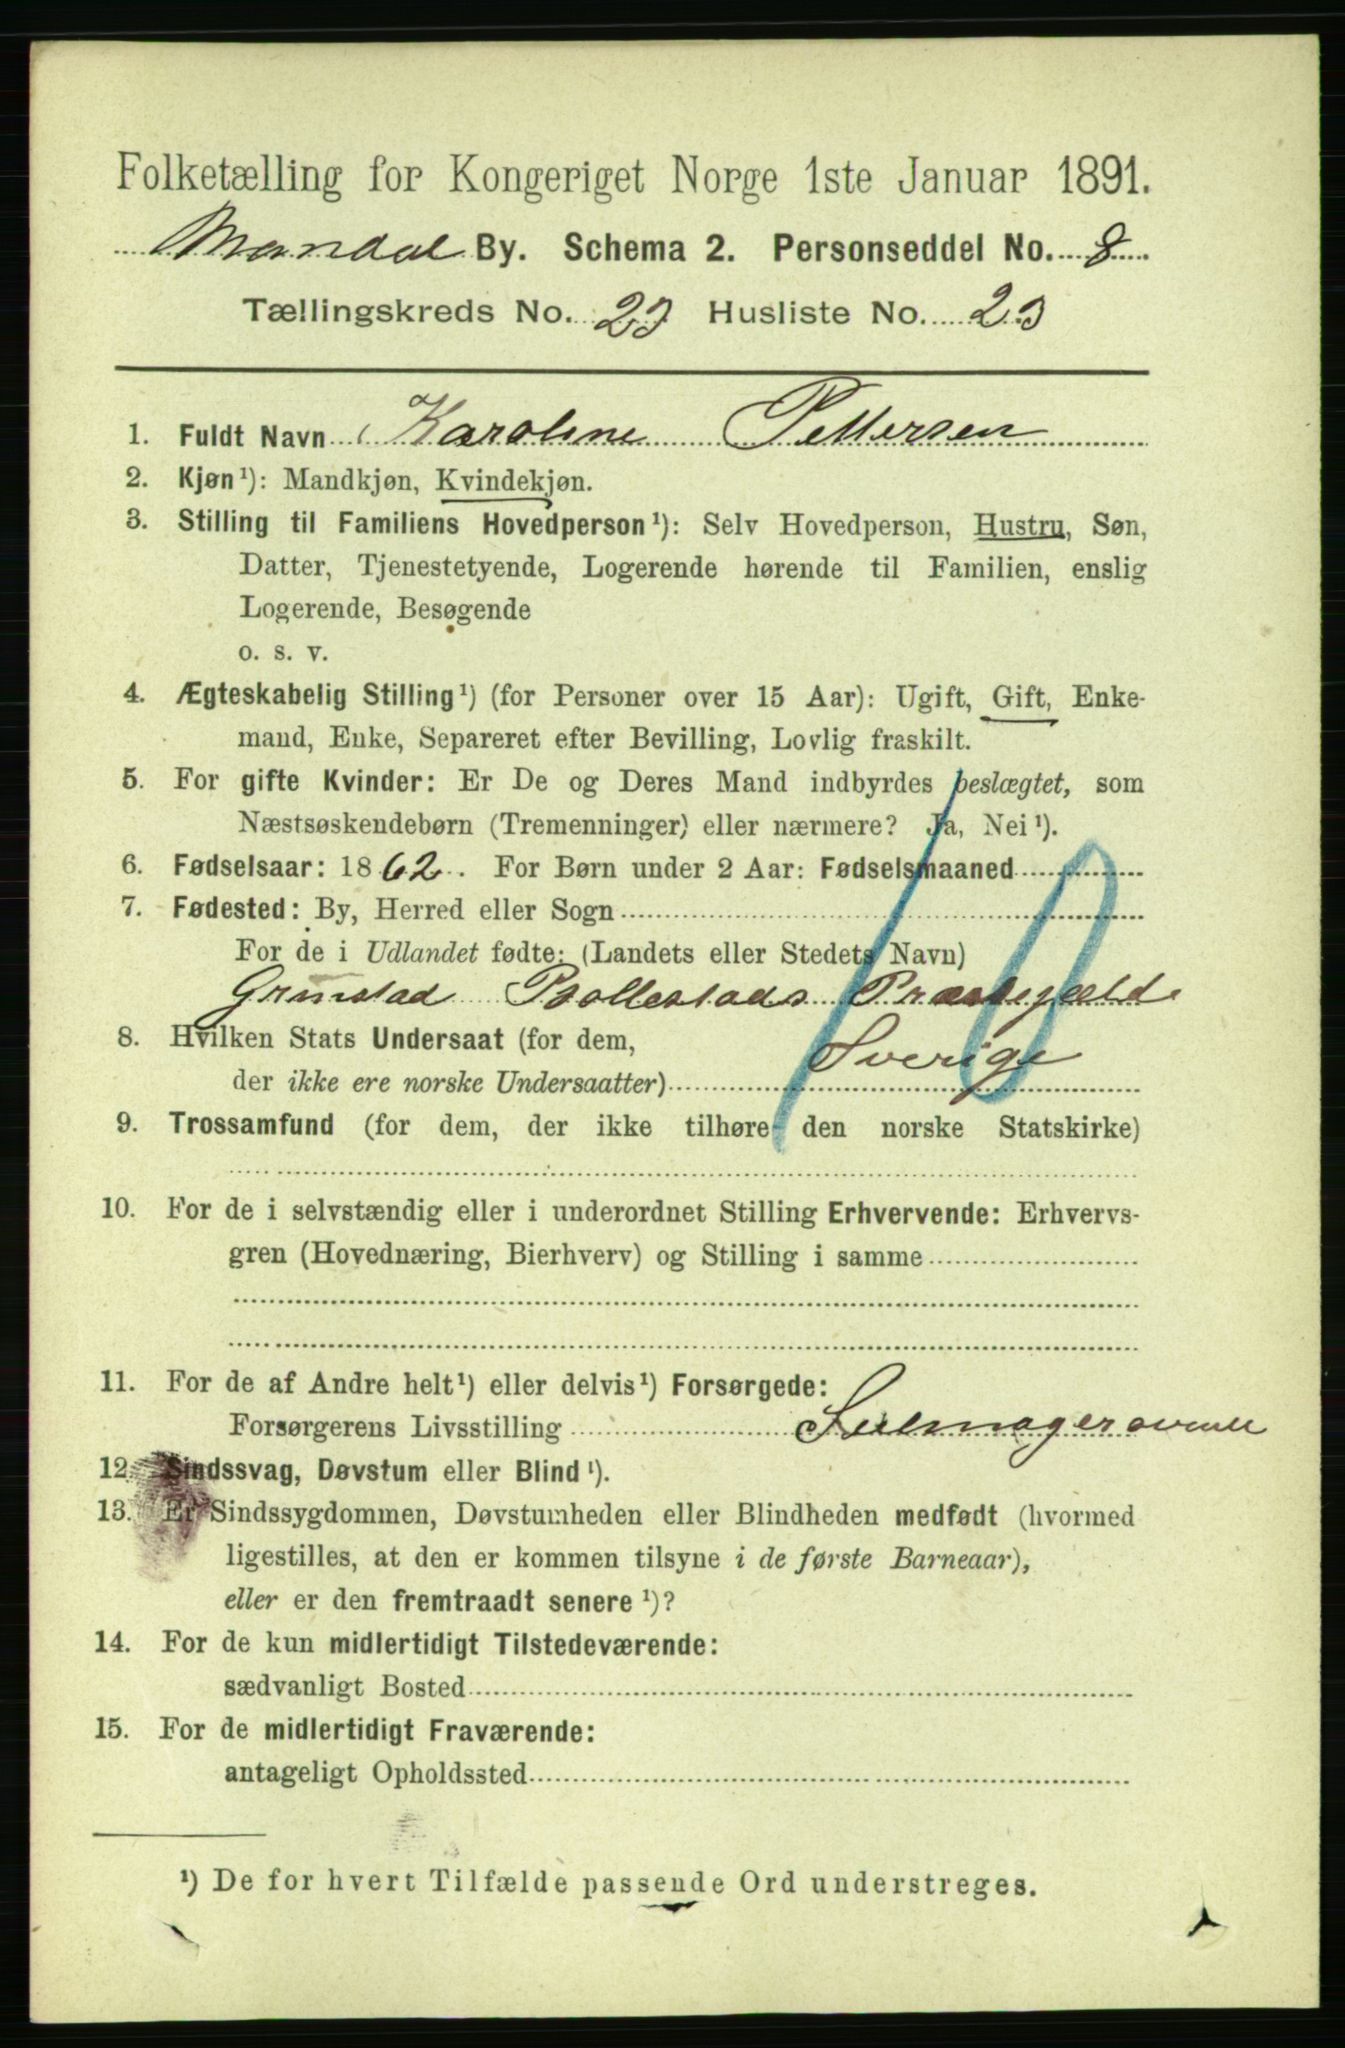 Folketælling for Kongeriget Norge 1ste Januar 1891.
Mandal By. Schema 2. Personseddel No. 8
Tællingskreds No. 23 Husliste No. 23
1. Fuldt Navn Karoline Pettersen
2. Kjøn¹): Mandkjøn, Kvindekjøn.
3. Stilling til Familiens Hovedperson¹): Selv Hovedperson, Hustru, Søn,
Datter, Tjenestetyende, Logerende hørende til Familien, enslig
Logerende, Besøgende
o. s. v.
4. Ægteskabelig Stilling¹) (for Personer over 15 Aar): Ugift, Gift, Enke-
mand, Enke, Separeret efter Bevilling, Lovlig fraskilt.
5. For gifte Kvinder: Er De og Deres Mand indbyrdes beslægtet, som
Næstsøskendebørn (Tremenninger) eller nærmere? Ja, Nei¹).
6. Fødselsaar: 1862. For Børn under 2 Aar: Fødselsmaaned
7. Fødested: By, Herred eller Sogn
For de i Udlandet fødte: (Landets eller Stedets Navn)
10
Grimstad Præstegjæld
8. Hvilken Stats Undersaat (for dem,
der ikke ere norske Undersaatter) Sverige
9. Trossamfund (for dem, der ikke tilhøre den norske Statskirke)
10. For de i selvstændig eller i underordnet Stilling Erhvervende: Erhvervs-
gren (Hovednæring, Bierhverv) og Stilling i samme
11. For de af Andre helt¹) eller delvis¹) Forsørgede:
Forsørgerens Livsstilling
12. Sindssvag, Døvstum eller Blind¹).
13. Er Sindssygdommen, Døvstumheden eller Blindheden medfødt (hvormed
ligestilles, at den er kommen tilsyne i de første Barneaar),
eller er den fremtraadt senere¹)?
14. For de kun midlertidigt Tilstedeværende:
sædvanligt Bosted
15. For de midlertidigt Fraværende:
antageligt Opholdssted
¹) De for hvert Tilfælde passende Ord understreges.